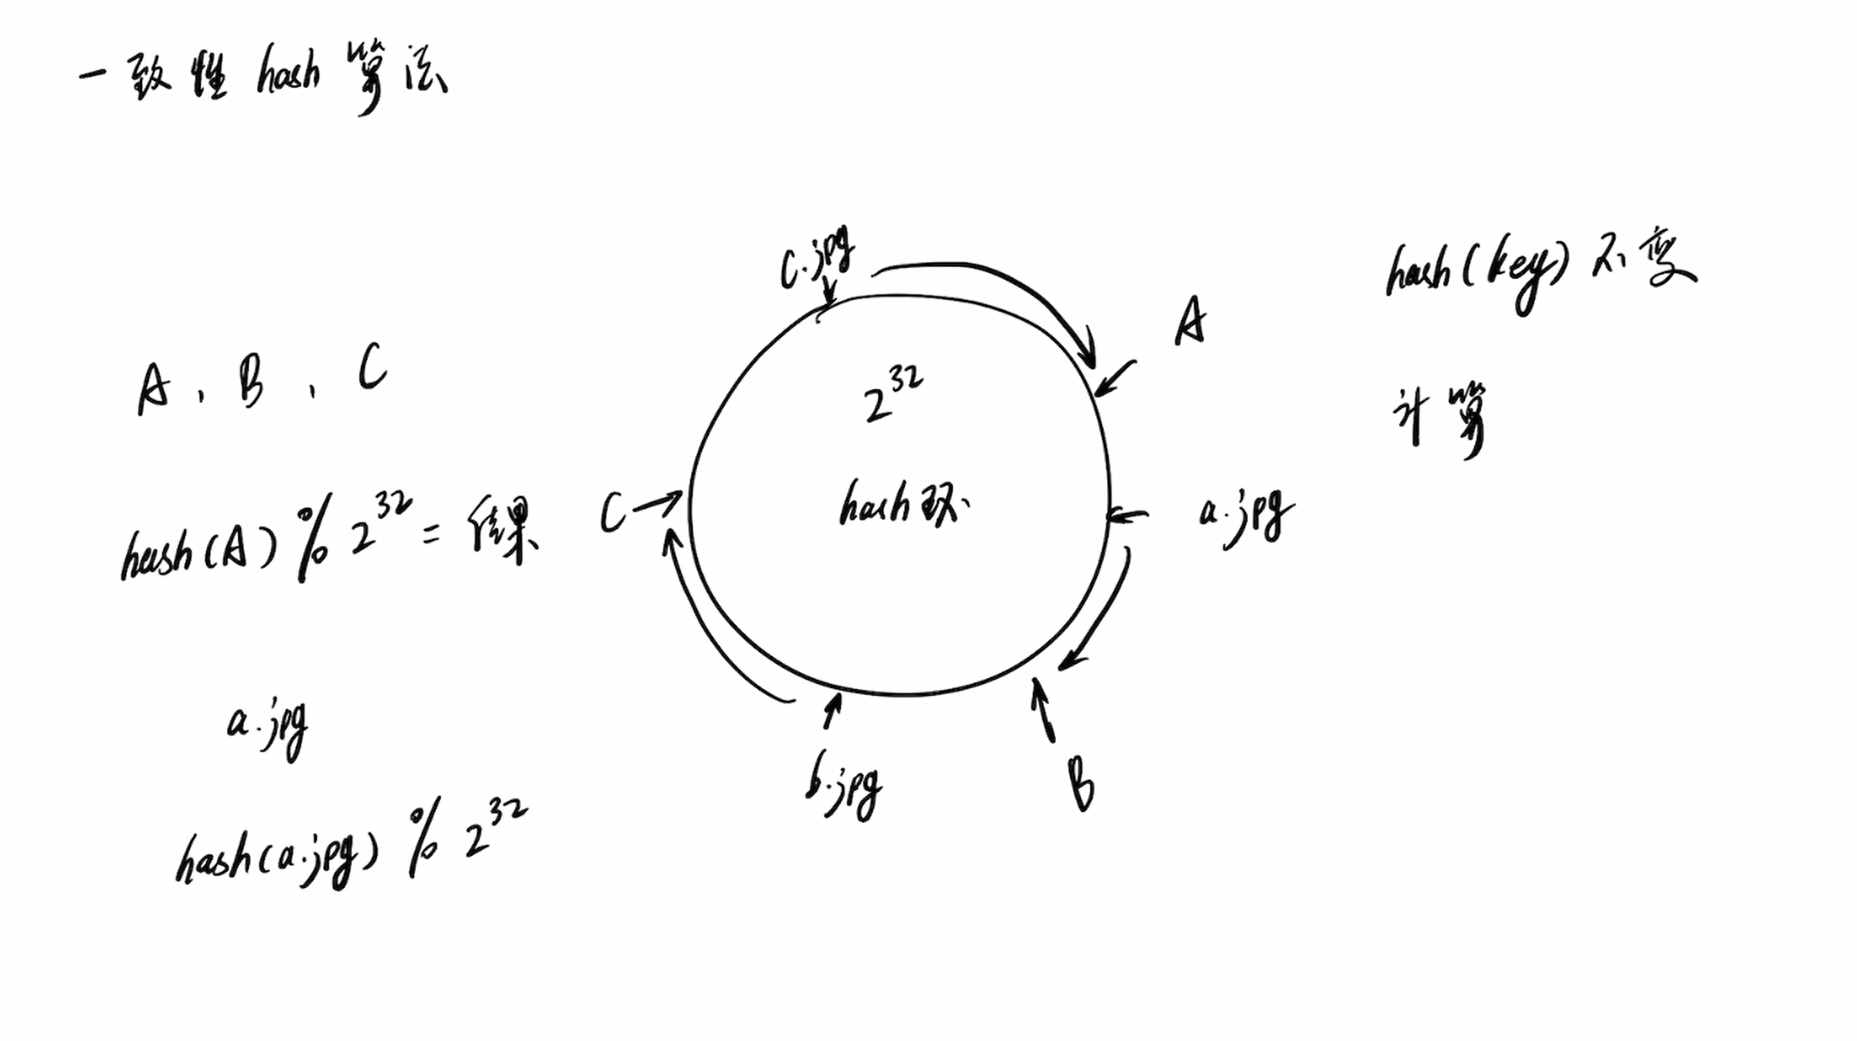 一致性 hash 算法
A, B, C
hash(A) % 2^32 = 结果
a.jpg
hash(a.jpg) % 2^32
c.jpg
A
2^32
hash 环
C
a.jpg
b.jpg
B
hash(key) 不变
计算